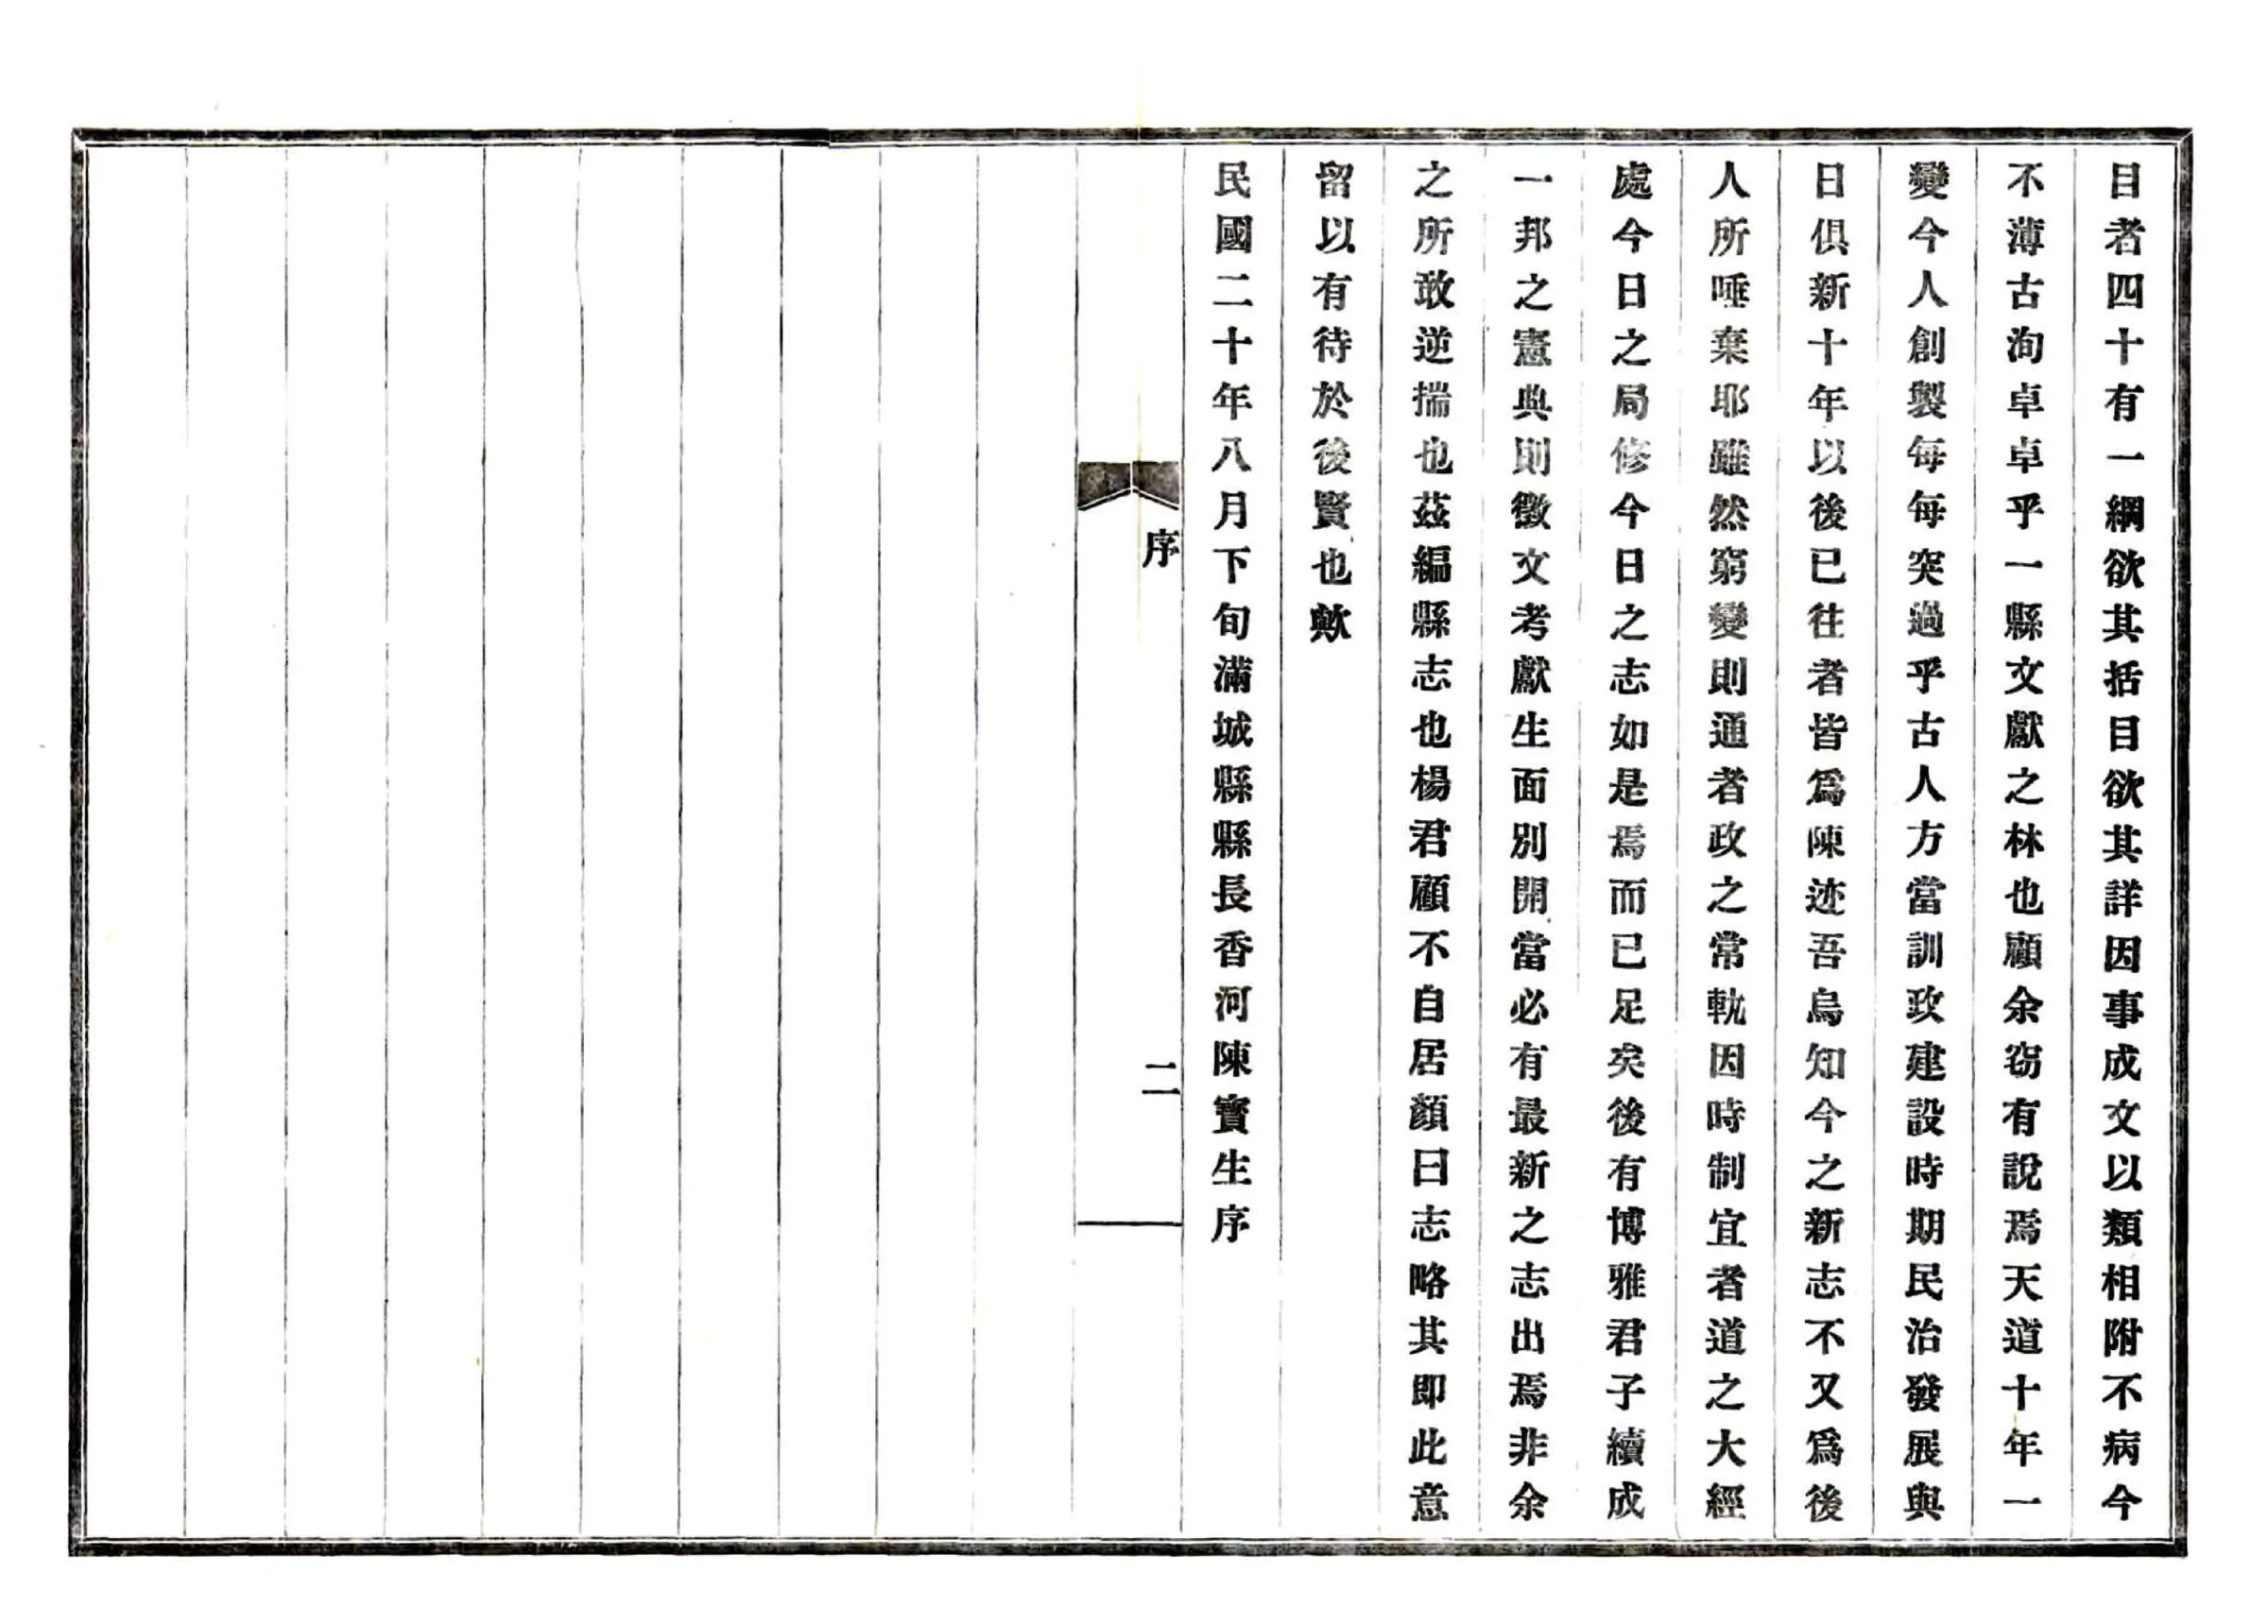 目者四十有一綱欲其括目欲其詳因事成文以類相附不病今
不薄古洵卓卓乎一縣文獻之林也顧余窃有說焉天道十年一
變今人創製每每突過乎古人方當訓政建設時期民治發展與
日俱新十年以後已往者皆爲陳迹吾烏知今之新志不又爲後
人所唾棄耶雖然窮變則通者政之常軌因時制宜者道之大經
處今日之局修今日之志如是焉而已足矣後有博雅君子續成
一邦之憲典則徵文考獻生面別開當必有最新之志出焉非余
之所敢逆揣也茲編縣志也楊君顧不自居顏曰志略其即此意
留以有待於後賢也歟
民國二十年八月下旬滿城縣縣長香河陳寶生序
序
二